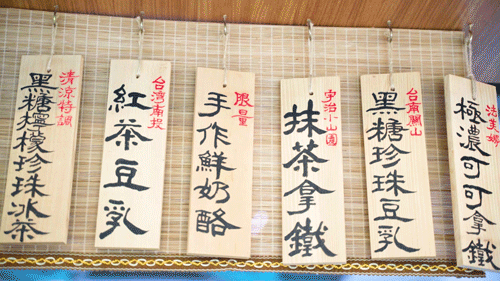 清涼特調
黑糖檸檬珍珠冰茶
台湾南投
紅茶豆乳
限量
手作鮮奶酪
宇治小山園
抹茶拿鐵
台南關山
黑糖珍珠豆乳
極濃可可拿鐵